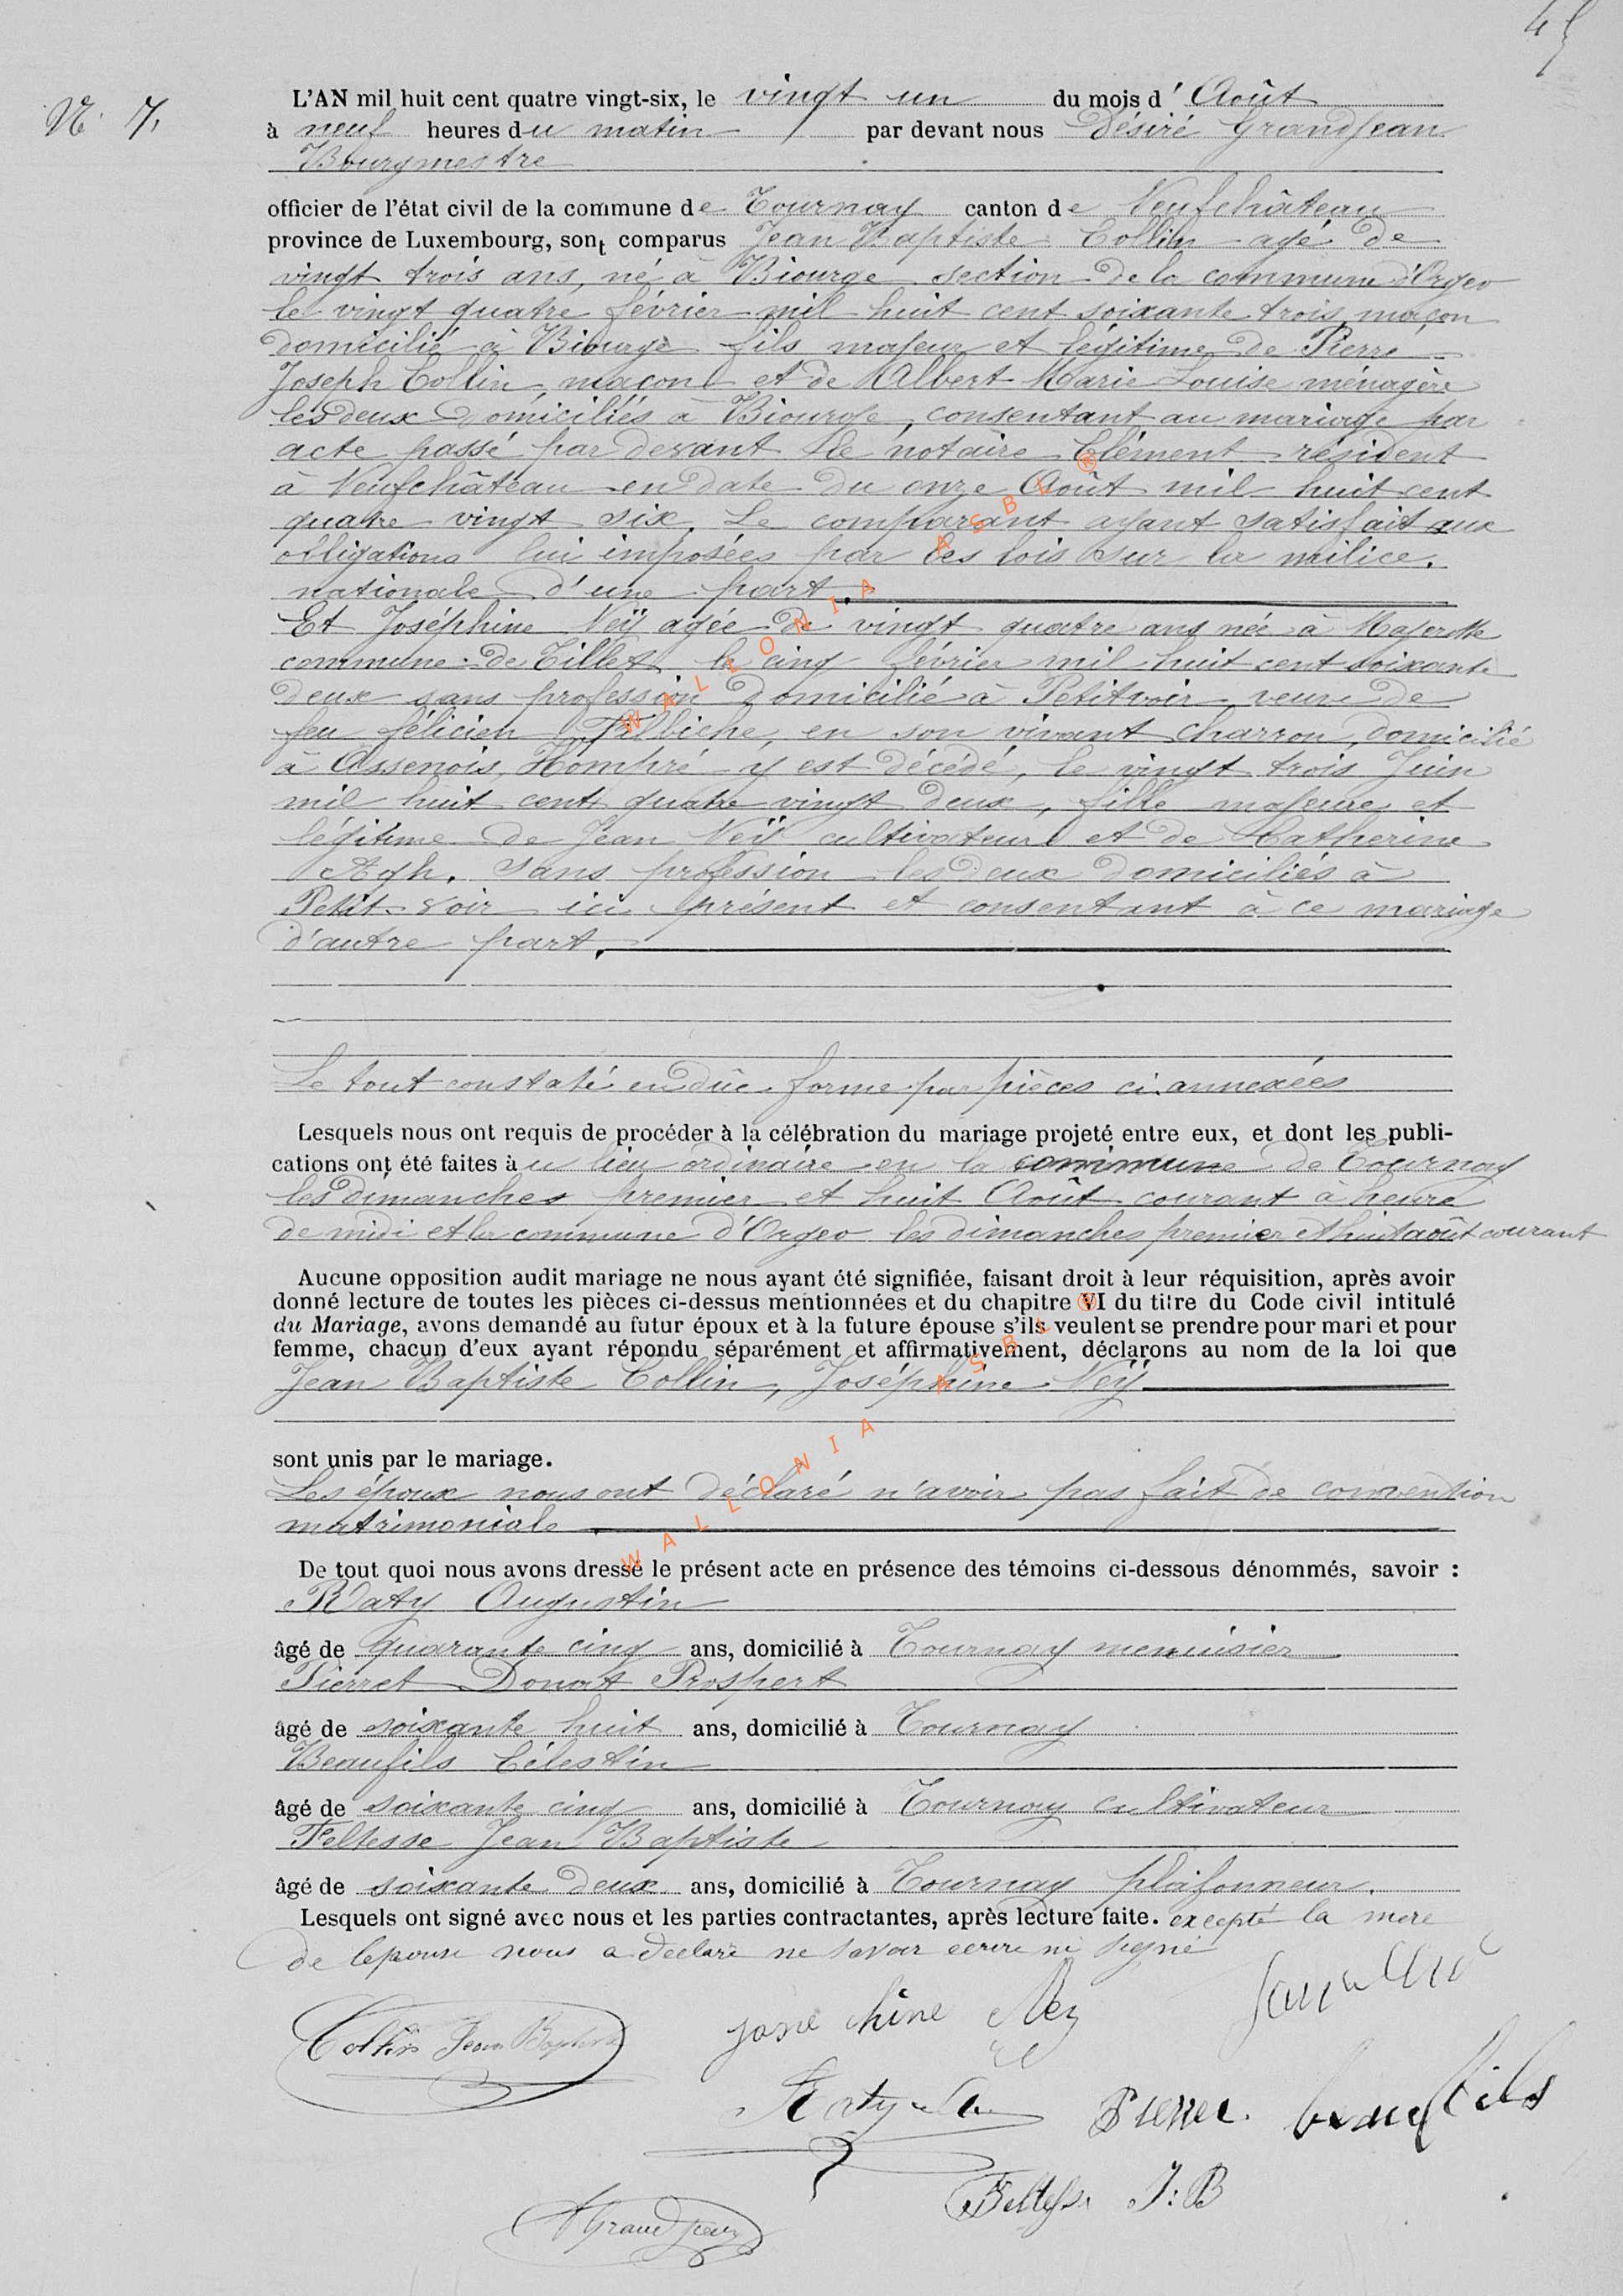 45
N. 7.
L'AN mil huit cent quatre vingt-six, le vingt un du mois d' Août
à neuf heures du matin par devant nous Désiré Grandjean
Bourgmestre
officier de l'état civil de la commune de Tournay canton de Neufchâteau
province de Luxembourg, sont comparus Jean Baptiste Collin agé de
vingt trois ans, né à Biourge section de la commune d'Orgeo
le vingt quatre février mil huit cent soixante trois, maçon
domicilié à Biourge fils majeur et légitime de Pierre
Joseph Collin, maçon et de Albert Marie Louise ménagère
les deux domiciliés à Biourge, consentant au mariage par
acte passé par devant Me notaire Clément résident
à Neufchâteau en date du onze Août mil huit cent
quatre vingt six. Le comparant ayant satisfait aux
obligations lui imposées par les lois sur la milice.
nationale d'une part.
Et Joséphine Neÿ agée de vingt quatre ans née à Majerotte
commune de Tillet le cinq février mil huit cent soixante
deux sans profession domicilié à Petitvoir veuve de
feu félicien Filbiche, en son vivant charron, domicilié
à Assenois, Hompré y est décédé, le vingt trois Juin
mil huit cent quatre vingt deux, fille majeure et
légitime de Jean Neÿ cultivateur et de Catherine
Agh. sans profession les deux domiciliés à
Petit-voir ici présent et consentant à ce mariage
d'autre part.
Le tout constaté en dûe forme par pièces ci-annexées
Lesquels nous ont requis de procéder à la célébration du mariage projeté entre eux, et dont les publi-
cations ont été faites au lieu ordinaire en la commune de Tournay
les dimanches premier et huit Août courant à heure
de midi et la commune d'Orgeo les dimanches premier et huit août courant
Aucune opposition audit mariage ne nous ayant été signifiée, faisant droit à leur réquisition, après avoir
donné lecture de toutes les pièces ci-dessus mentionnées et du chapitre VI du titre du Code civil intitulé
du Mariage, avons demandé au futur époux et à la future épouse s'ils veulent se prendre pour mari et pour
femme, chacun d'eux ayant répondu séparément et affirmativement, déclarons au nom de la loi que
Jean Baptiste Collin, Joséphine Neÿ
sont unis par le mariage.
Les époux nous ont déclaré n'avoir pas fait de convention
matrimoniale
De tout quoi nous avons dressé le présent acte en présence des témoins ci-dessous dénommés, savoir :
Raty Augustin
âgé de quarante cinq ans, domicilié à Tournay menuisier
Pierret Donat Prospert
âgé de soixante huit ans, domicilié à Tournay
Beaufils Célestin
âgé de soixante cinq ans, domicilié à Tournay cultivateur
Feltesse Jean Baptiste
âgé de soixante deux ans, domicilié à Tournay plafonneur.
Lesquels ont signé avec nous et les parties contractantes, après lecture faite. excepté la mere
de lepouse nous a declaré ne savoir ecrire ni signé
Collin Jean Baptiste
josephine Neÿ
Raty
Pierret
beaufils
Feltesse J:B
Grandjean
WALLONIA ASBL ®
WALLONIA ASBL ®